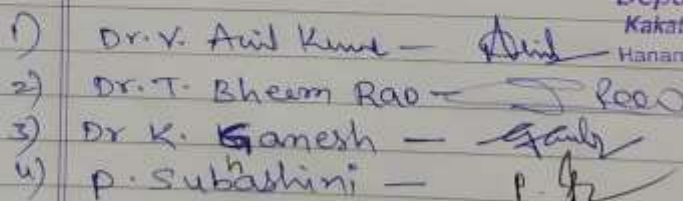 Depa
Kakat
Hanam
1) Dr. V. Anil Kumar —
2) Dr. T. Bheem Rao —
3) Dr K. Ganesh —
4) P. Subhashini —